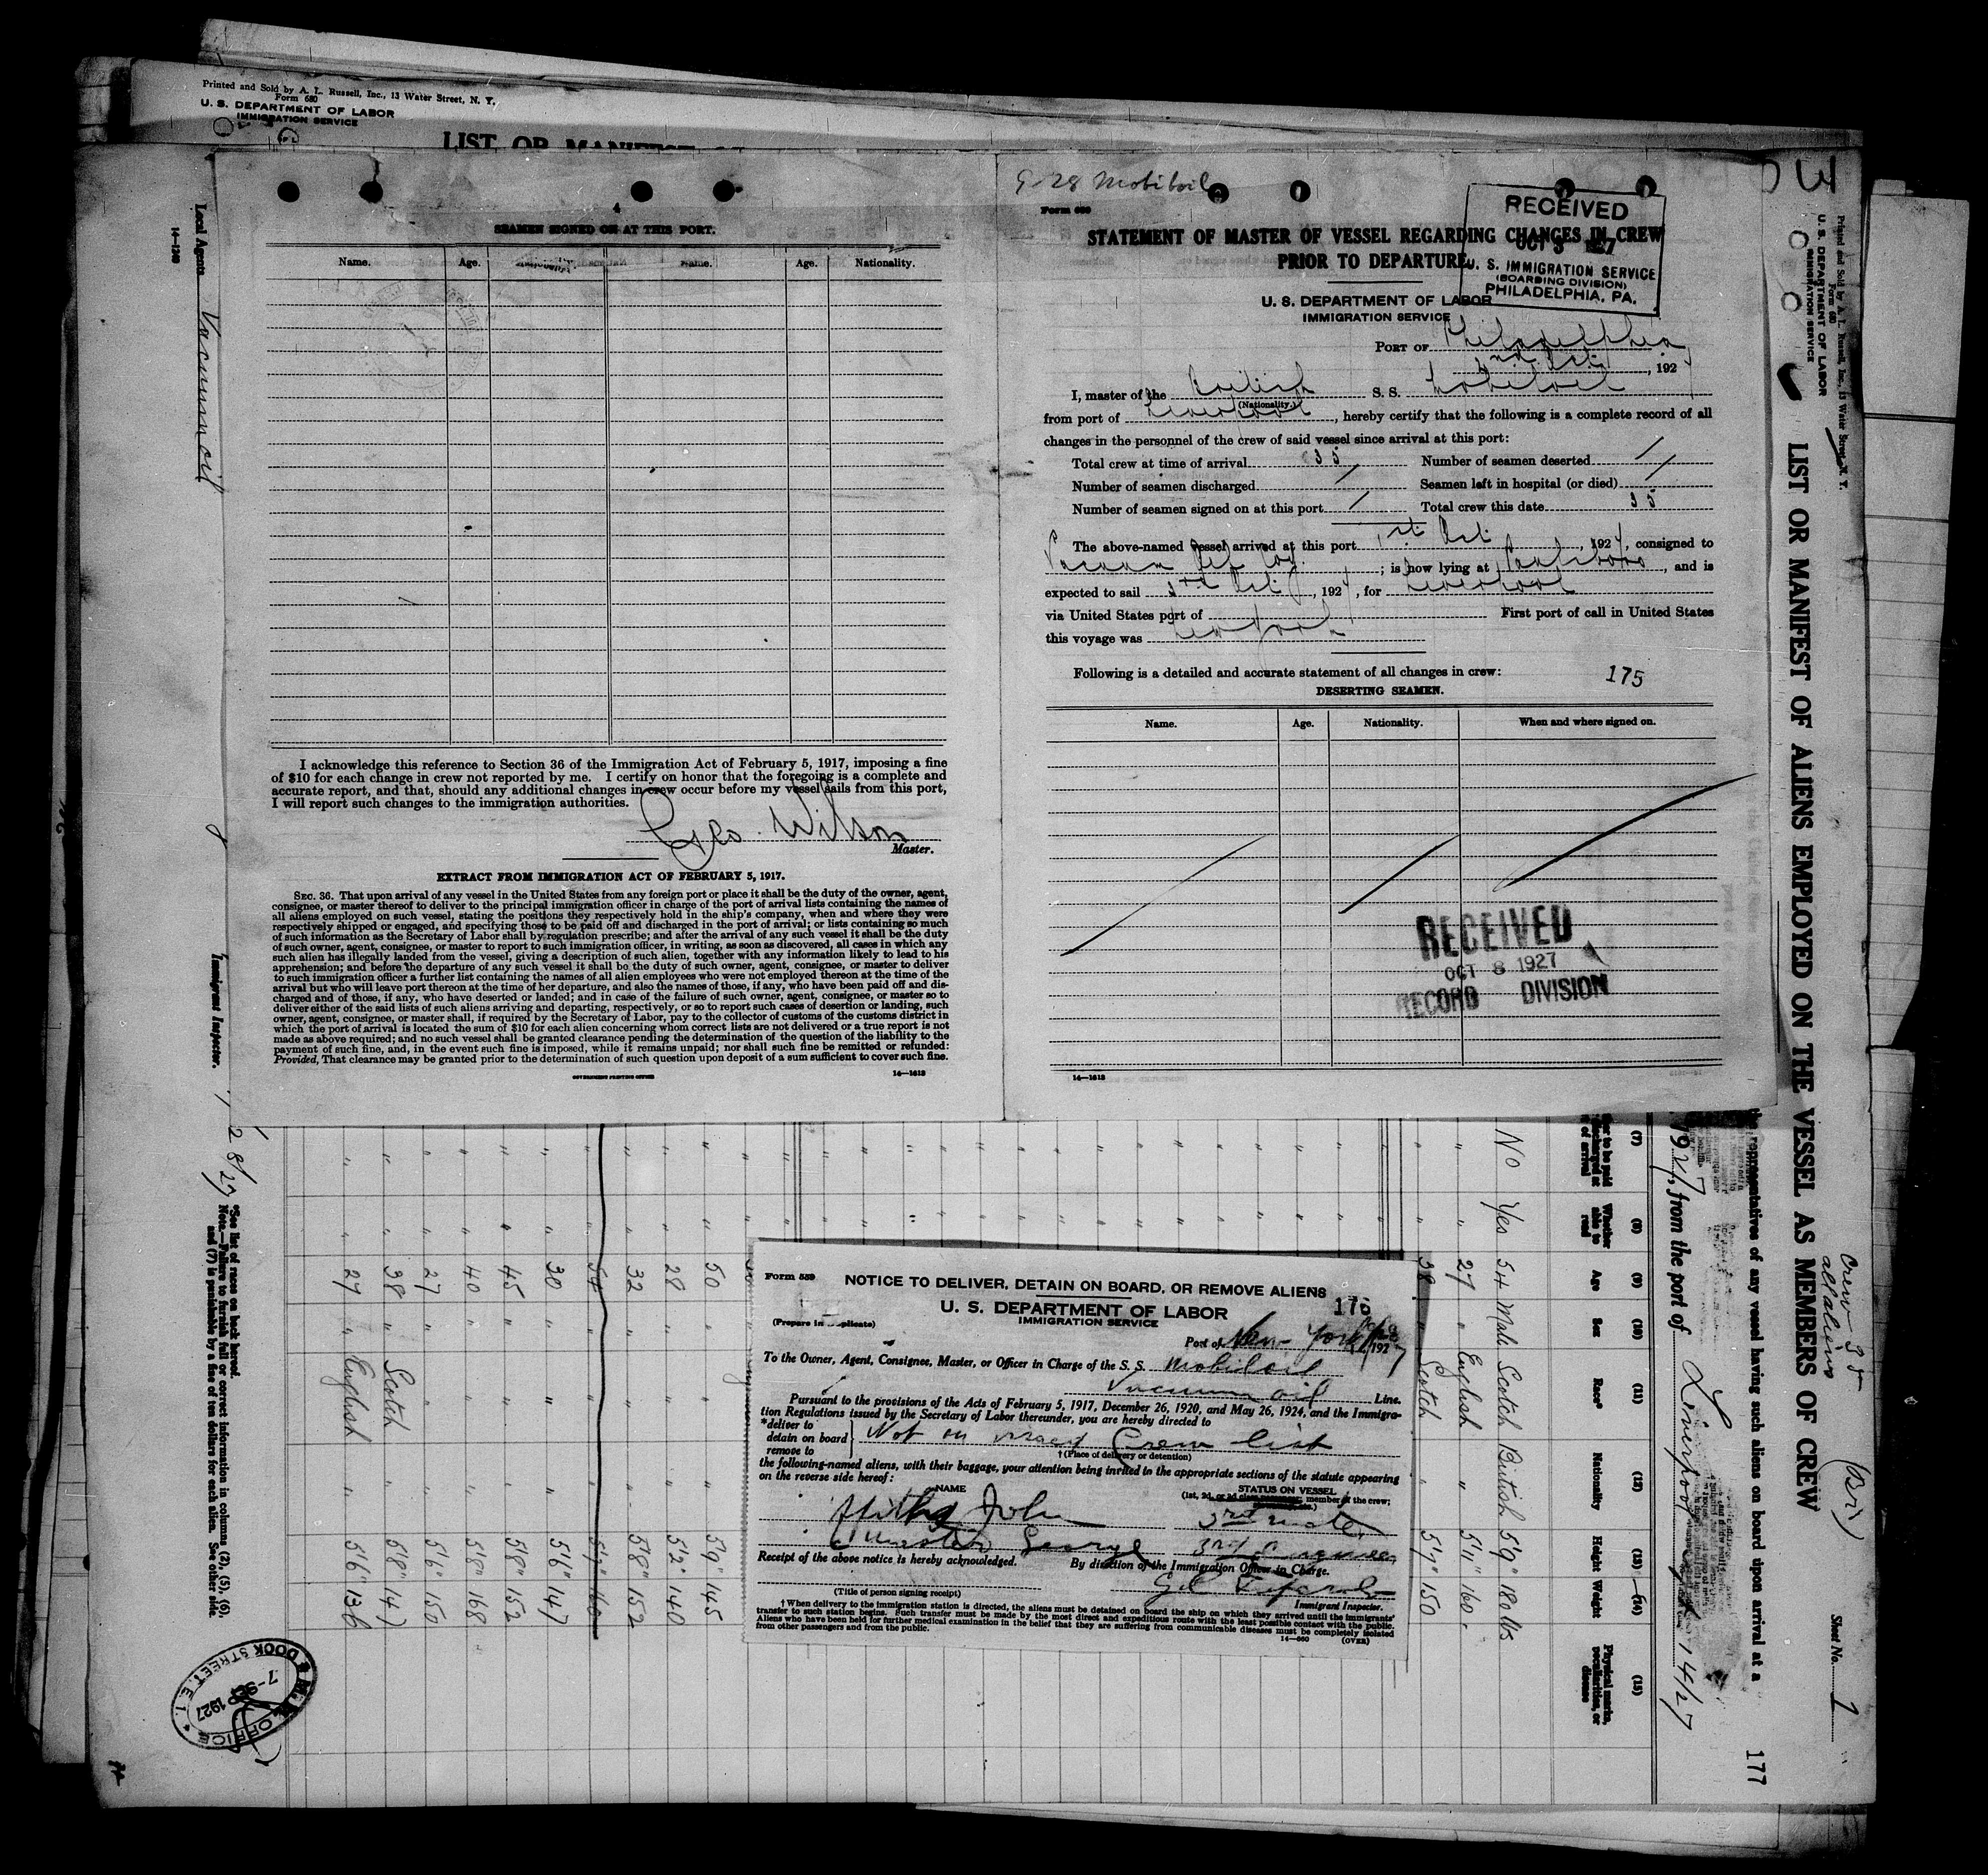 Printed and Sold by A. L. Russell, Inc., 13 Water Street, N. Y.
Form 680
U. S. DEPARTMENT OF LABOR
IMMIGRATION SERVICE
LIST OR MANIFEST
Local Agents Vacuum oil
14—1240
Immigrant Inspector.
4
SEAMEN SIGNED ON AT THIS PORT.
Name. Age. Nationality. Name. Age. Nationality.
I acknowledge this reference to Section 36 of the Immigration Act of February 5, 1917, imposing a fine
of $10 for each change in crew not reported by me. I certify on honor that the foregoing is a complete and
accurate report, and that, should any additional changes in crew occur before my vessel sails from this port,
I will report such changes to the immigration authorities.
Geo. Wilson
Master.
EXTRACT FROM IMMIGRATION ACT OF FEBRUARY 5, 1917.
SEC. 36. That upon arrival of any vessel in the United States from any foreign port or place it shall be the duty of the owner, agent,
consignee, or master thereof to deliver to the principal immigration officer in charge of the port of arrival lists containing the names of
all aliens employed on such vessel, stating the positions they respectively hold in the ship's company, when and where they were
respectively shipped or engaged, and specifying those to be paid off and discharged in the port of arrival; or lists containing so much
of such information as the Secretary of Labor shall by regulation prescribe; and after the arrival of any such vessel it shall be the duty
of such owner, agent, consignee, or master to report to such immigration officer, in writing, as soon as discovered, all cases in which any
such alien has illegally landed from the vessel, giving a description of such alien, together with any information likely to lead to his
apprehension; and before the departure of any such vessel it shall be the duty of such owner, agent, consignee, or master to deliver
to such immigration officer a further list containing the names of all alien employees who were not employed thereon at the time of the
arrival but who will leave port thereon at the time of her departure, and also the names of those, if any, who have been paid off and dis-
charged and of those, if any, who have deserted or landed; and in case of the failure of such owner, agent, consignee, or master so to
deliver either of the said lists of such aliens arriving and departing, respectively, or so to report such cases of desertion or landing, such
owner, agent, consignee, or master shall, if required by the Secretary of Labor, pay to the collector of customs of the customs district in
which the port of arrival is located the sum of $10 for each alien concerning whom correct lists are not delivered or a true report is not
made as above required; and no such vessel shall be granted clearance pending the determination of the question of the liability to the
payment of such fine, and, in the event such fine is imposed, while it remains unpaid; nor shall such fine be remitted or refunded:
Provided, That clearance may be granted prior to the determination of such question upon deposit of a sum sufficient to cover such fine.
GOVERNMENT PRINTING OFFICE 14—1613
9-28 Mobiloil
Form 680
RECEIVED
OCT 3 1927
U. S. IMMIGRATION SERVICE
(BOARDING DIVISION)
PHILADELPHIA, PA.
STATEMENT OF MASTER OF VESSEL REGARDING CHANGES IN CREW
PRIOR TO DEPARTURE
U. S. DEPARTMENT OF LABOR
IMMIGRATION SERVICE
PORT OF Philadelphia
3rd Oct. , 1927
I, master of the British S. S. Mobiloil
(Nationality.)
from port of Liverpool, hereby certify that the following is a complete record of all
changes in the personnel of the crew of said vessel since arrival at this port:
Total crew at time of arrival 35 Number of seamen deserted /
Number of seamen discharged / Seamen left in hospital (or died) /
Number of seamen signed on at this port / Total crew this date 35
The above-named vessel arrived at this port 1st Oct. , 1927, consigned to
Vacuum Oil Coy. ; is now lying at Paulsboro, and is
expected to sail 3rd Oct. , 1927, for Liverpool
via United States port of First port of call in United States
this voyage was New York
Following is a detailed and accurate statement of all changes in crew: 175
DESERTING SEAMEN.
Name. Age. Nationality. When and where signed on.
RECEIVED
OCT 8 1927
RECORD DIVISION
14—1613
Form 559
NOTICE TO DELIVER, DETAIN ON BOARD, OR REMOVE ALIENS
176
U. S. DEPARTMENT OF LABOR
IMMIGRATION SERVICE
(Prepare in duplicate)
Port of New York 1927
To the Owner, Agent, Consignee, Master, or Officer in Charge of the S. S. Mobiloil
Vacuum oil Line.
Pursuant to the provisions of the Acts of February 5, 1917, December 26, 1920, and May 26, 1924, and the Immigra-
tion Regulations issued by the Secretary of Labor thereunder, you are hereby directed to
*deliver to
detain on board
remove to
Not on visaed Crew list
†(Place of delivery or detention)
the following-named aliens, with their baggage, your attention being invited to the appropriate sections of the statute appearing
on the reverse side hereof:
NAME STATUS ON VESSEL
(1st, 2d, or 3d class passenger; member of the crew;
John 3rd mate
George 3rd Engineer
Receipt of the above notice is hereby acknowledged. By direction of the Immigration Officer in Charge.
(Title of person signing receipt) Immigrant Inspector.
†When delivery to the immigration station is directed, the aliens must be detained on board the ship on which they arrived until the immigrants'
transfer to such station begins. Such transfer must be made by the most direct and expeditious route with the least possible contact with the public.
Aliens who have been held for further medical examination in the belief that they are suffering from communicable diseases must be completely isolated
from other passengers and from the public.
14—660 (OVER)
Printed and Sold by A. L. Russell, Inc., 13 Water Street, N. Y.
Form 680
U. S. DEPARTMENT OF LABOR
IMMIGRATION SERVICE
LIST OR MANIFEST OF ALIENS EMPLOYED ON THE VESSEL AS MEMBERS OF CREW
Crew 35
all aliens
(Br)
Sheet No. 1
177
the representatives of any vessel having such aliens on board upon arrival at a
1927, from the port of Liverpool 14/27
(7) (8) (9) (10) (11) (12) (13) (14) (15)
Whether able to read Age Sex Race* Nationality Height Weight Physical marks, peculiarities, or disease
No Yes 54 Male Scotch British 5'9" 180 lbs
" " 27 " English " 5'11" 160
" " 38 " Scotch " 5'7" 150
" " 50 " " " 5'9" 145
" " 28 " " " 5'2" 140
" " 32 " " " 5'8" 152
" " 54 " " " 5'7" 160
" " 30 " " " 5'6" 147
" " 45 " " " 5'8" 152
" " 40 " " " 5'8" 168
" " 27 " " " 5'6" 150
" " 38 " Scotch " 5'8" 147
" " 27 " English " 5'6" 136
*See list of races on back hereof.
Note.—Failure to furnish full or correct information in columns (2), (5), (6),
and (7) is punishable by a fine of ten dollars for each alien. See other side.
OFFICE
7-SEP 1927
DOCK STREET E.1.